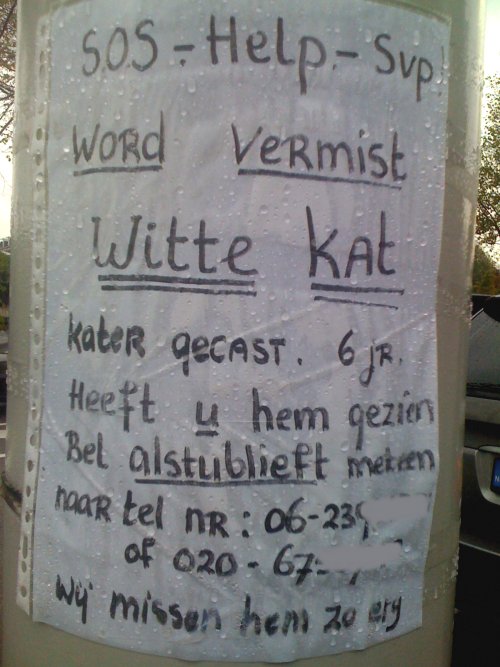 S.O.S.-Help.-Svp!
WORd VeRmist
Witte KAt
KateR geCAST. 6 jR.
Heeft u hem gezien
Bel alstublieft meteen
naaR tel nR: 06-239
of 020-67
Wij missen hem zo erg